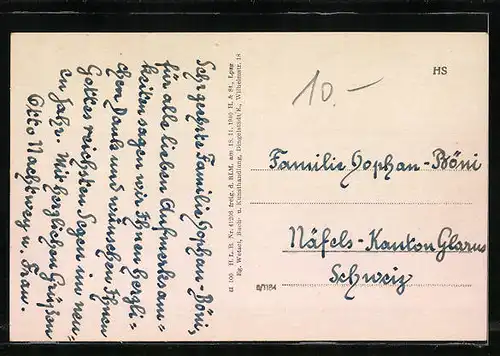 Sehr geehrte Familie Hophan-Böni,
für alle lieben Aufmerksam-
keiten sagen wir Ihnen herzli-
chen Dank und wünschen Ihnen
Gottes reichsten Segen im neu-
en Jahr. Mit herzlichen Grüßen
Otto Nachtwey u. Frau.
M 106 H. L. B. Nr. 41206 freig. d. RLM. am 18. 11. 1940 H. & St., Lpzg
Hg. Wetzel, Buch- u. Kunsthandlung, Dingelstädt E., Wilhelmstr. 18
10.-
HS
Familie Hophan-Böni
Näfels-Kanton Glarus
Schweiz
B/1184